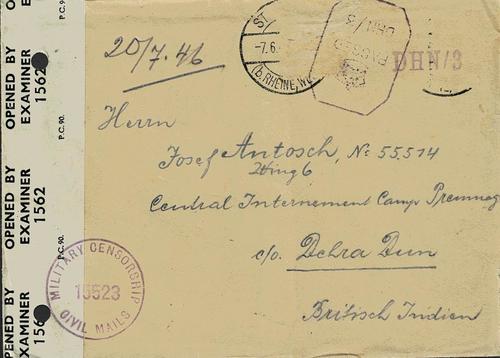 OPENED BY
EXAMINER 1562
P.C.90.
OPENED BY
EXAMINER 1562
P.C.90.
OPENED BY
EXAMINER
20/7.46
-7.6
(b. RHEINE,
PASSED
DHN/3
DHN/3
Herrn
Josef Antosch, No 55514
Wing 6
Central Internement Camp Premnag
c/o. Dehra Dun
Britisch Indien
MILITARY CENSORSHIP
15523
CIVIL MAILS